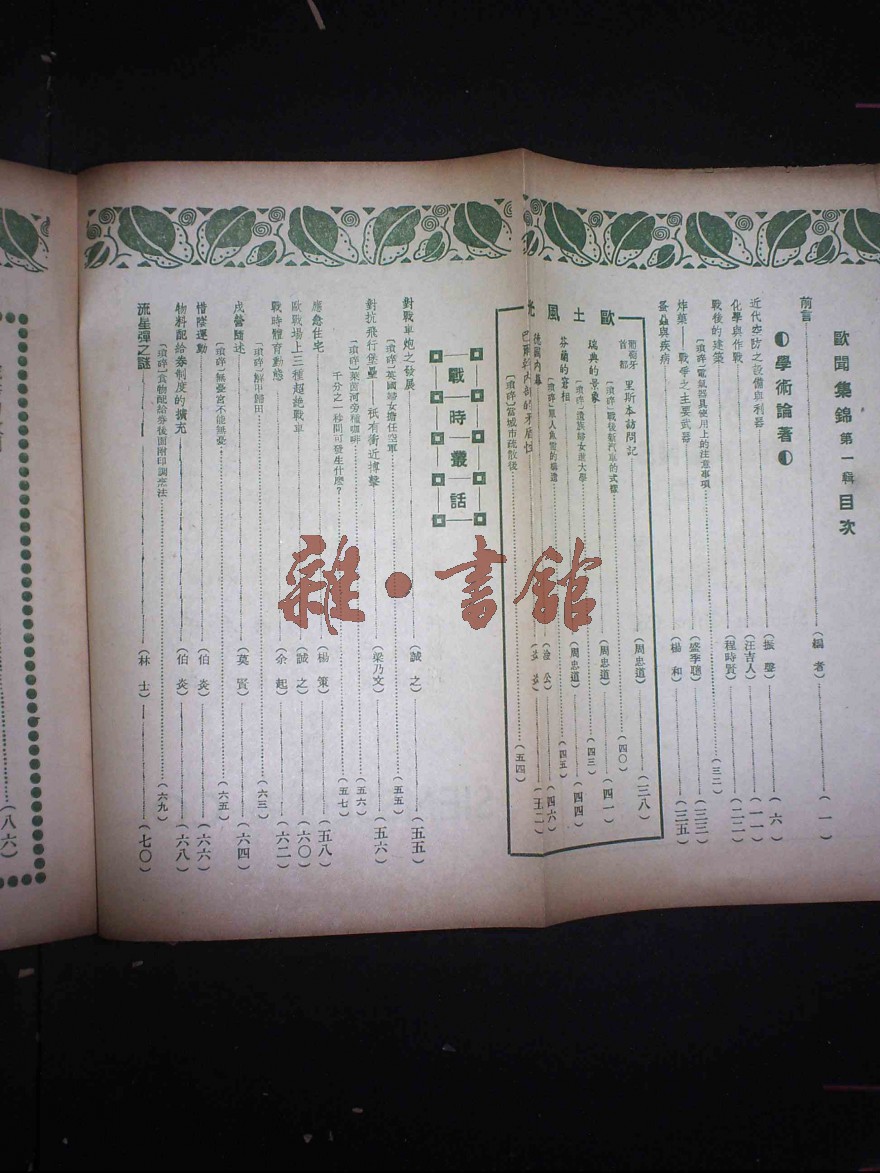 歐聞集錦 第一輯 目次
前言 (編者) (一)
學術論著
近代空防之設備與利器 (振聲) (六)
化學與作戰 (汪吉人) (一一)
戰後的建築 (程時賢) (二二)
〔瑣碎〕電氣器具使用上的注意事項 (三二)
炸藥——戰爭之主要武器 (盛季聰) (三三)
蚤蝨與疾病 (楊和) (三五)
歐土風光
葡萄牙首都 里斯本訪問記 (周忠道) (三八)
〔瑣碎〕戰後新汽車的式樣 (四〇)
瑞典的景象 (周忠道) (四一)
〔瑣碎〕遺族婦女進大學 (四三)
芬蘭的窘相 (周忠道) (四四)
〔瑣碎〕單人魚雷的構造 (四五)
德國內幕 (金公) (四六)
巴爾幹內部的矛盾性
〔瑣碎〕當城市疏散後 (五四)
戰時叢話
對戰車炮之發展 (誠之) (五五)
〔瑣碎〕英國婦女擔任空軍 (五五)
對抗飛行堡壘——祇有銜近搏擊 (梁乃文) (五六)
〔瑣碎〕萊茵河旁種咖啡 (五六)
千分之一秒間可發生什麼？ (五七)
應急住宅 (楊策) (五八)
歐戰場上三種超絶戰車 (誠之) (六〇)
戰時體育動態 (余起) (六二)
〔瑣碎〕解甲歸田 (六三)
戍營隨述 (莫賢) (六四)
〔瑣碎〕無憂宮不能無憂 (六五)
惜陰運動 (伯炎) (六六)
物料配給券制度的擴充 (伯炎) (六八)
〔瑣碎〕食物配給券後面附印調烹法 (六九)
流星彈之謎 (林士) (七〇)
(八六)
雜·書館